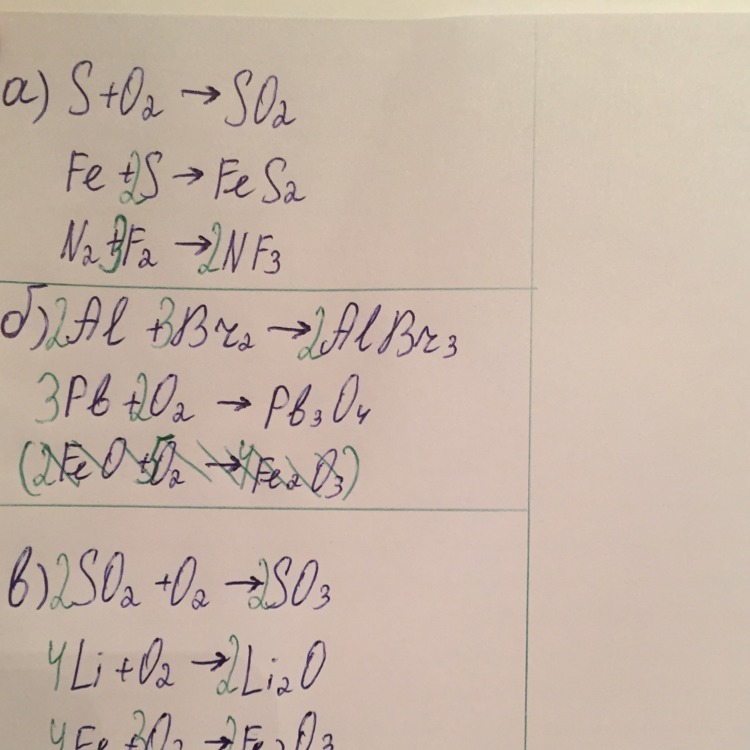 а) S + O₂ → SO₂
Fe + 2S → FeS₂
N₂ + 3F₂ → 2NF₃
б) 2Al + 3Br₂ → 2AlBr₃
3Pb + 2O₂ → Pb₃O₄
(2FeO + 5O₂ → 4Fe₂O₃)
в) 2SO₂ + O₂ → 2SO₃
4Li + O₂ → 2Li₂O
4Fe + 3O₂ → 2Fe₂O₃